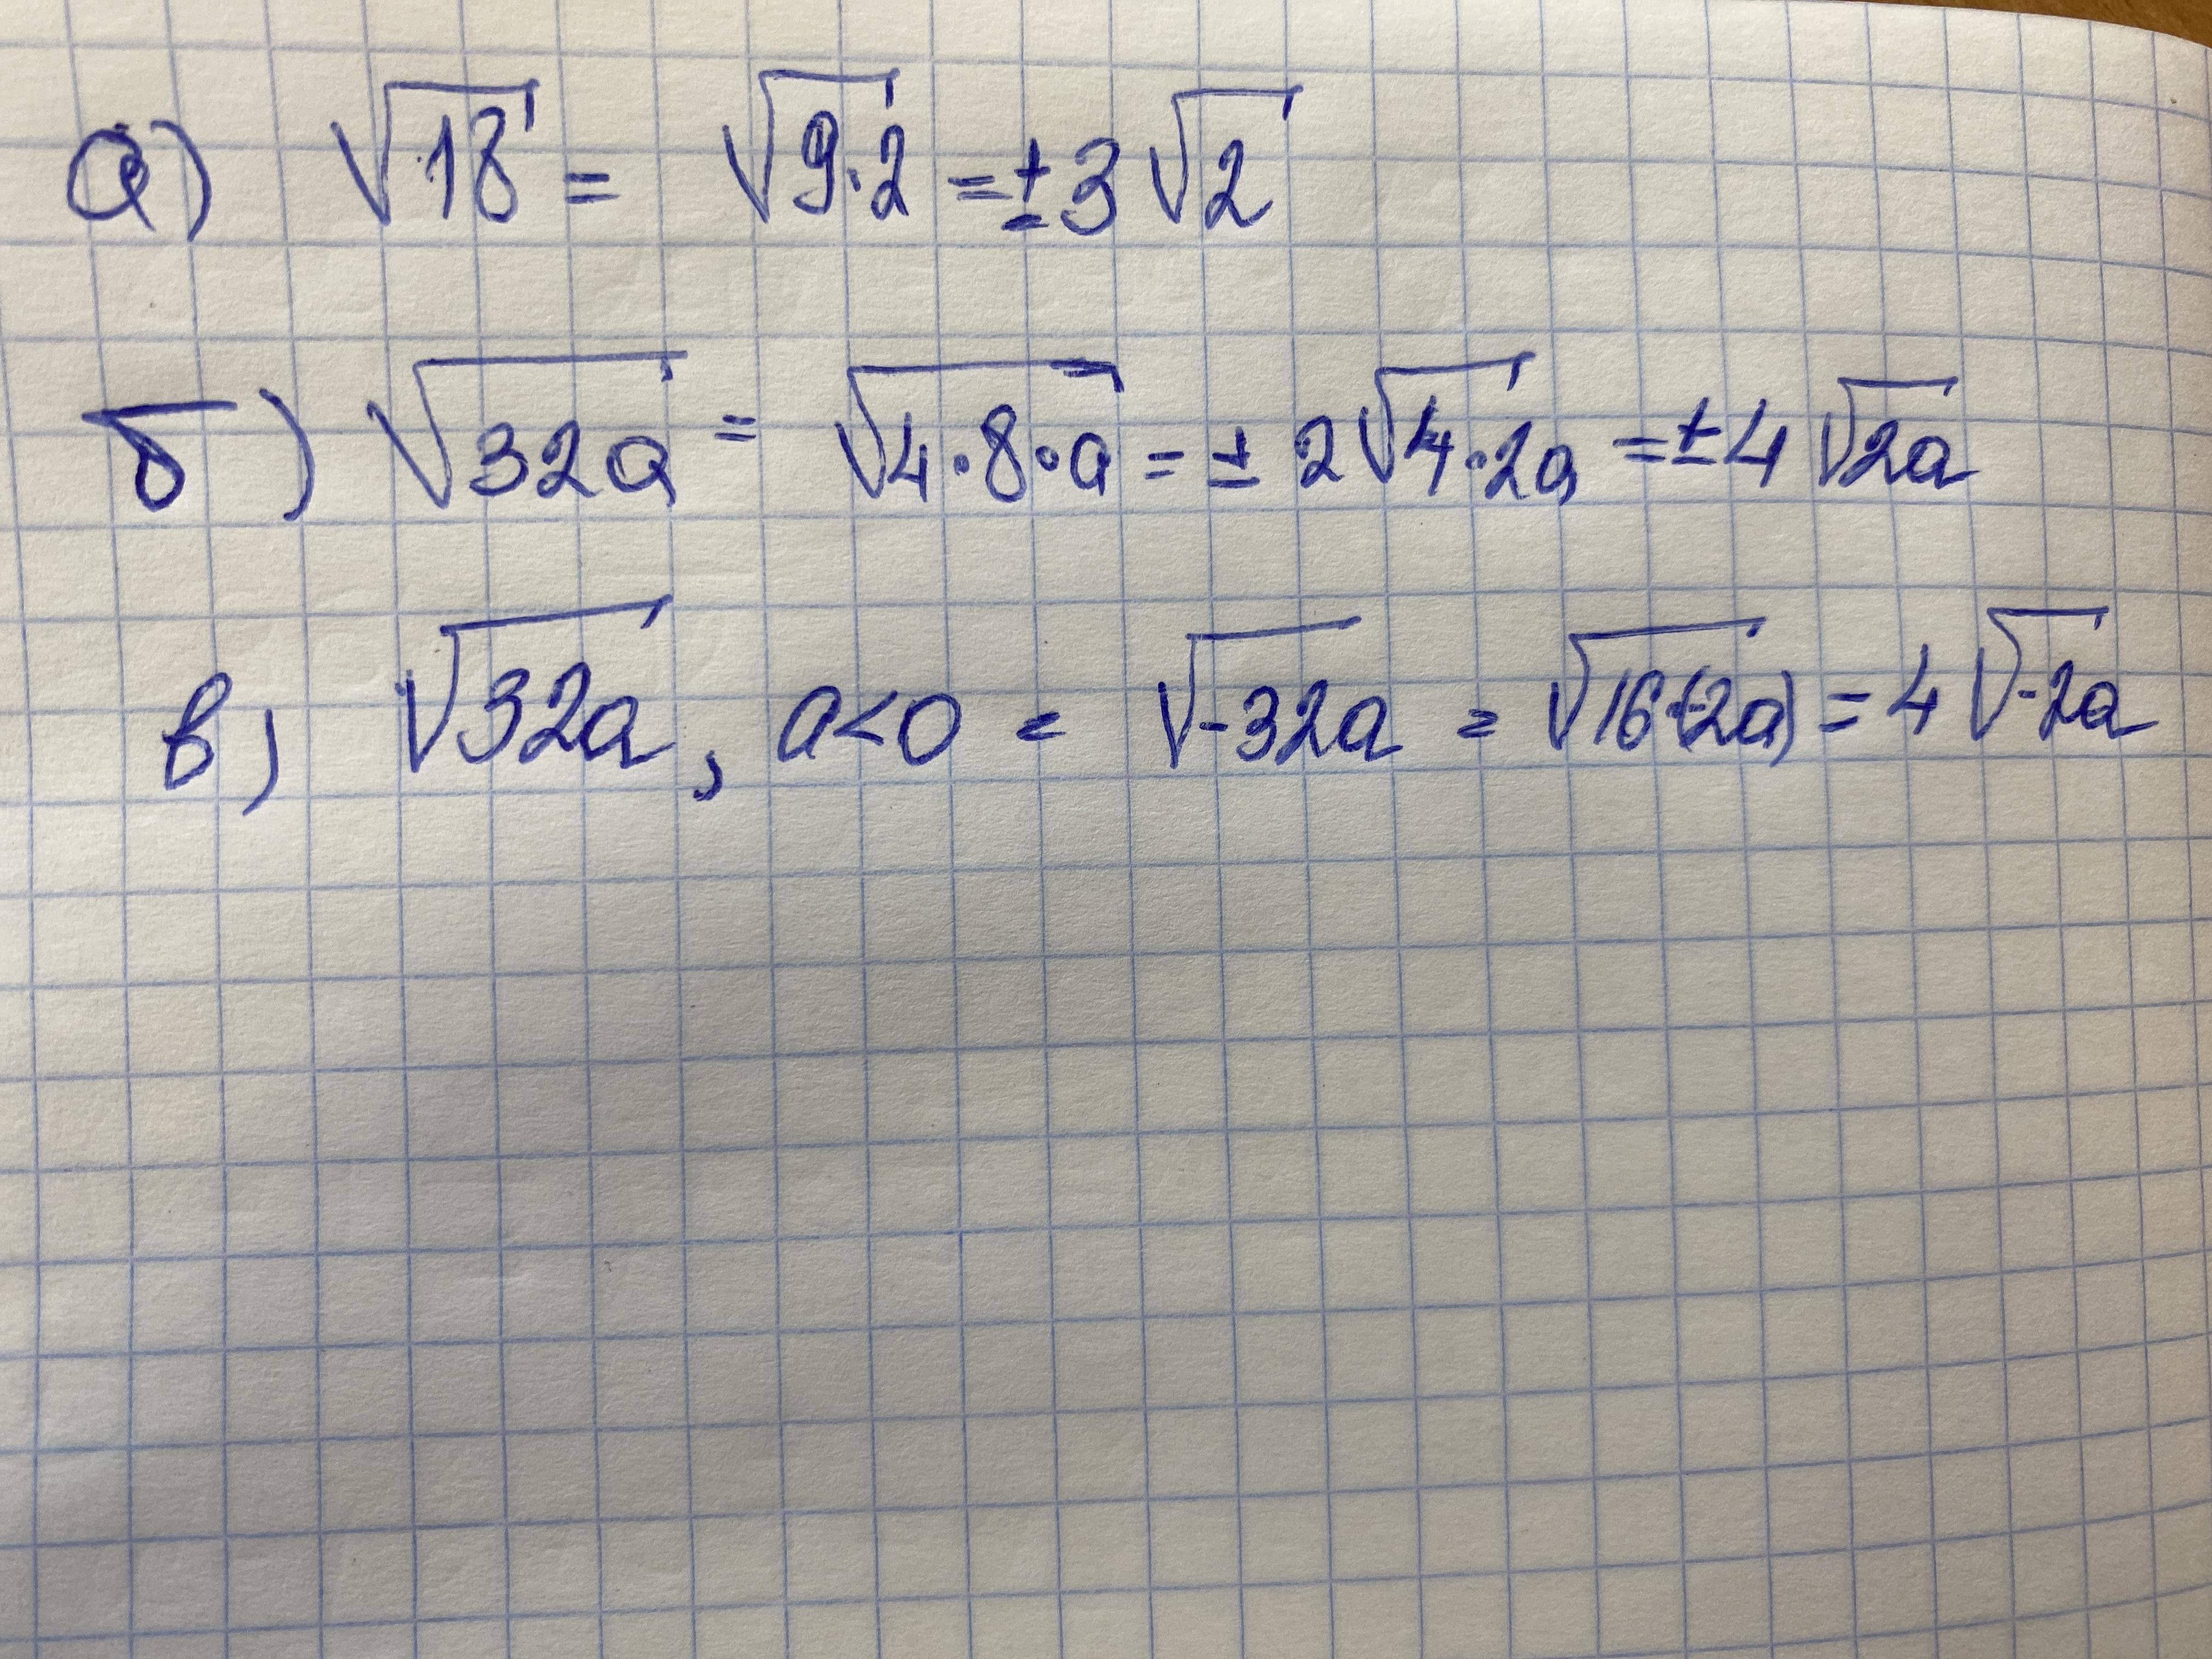 а) √18 = √9·2 = ±3√2
б) √32a = √4·8·a = ±2√4·2a = ±4√2a
в) √32a, a<0 = √-32a = √16·(-2a) = 4√-2a